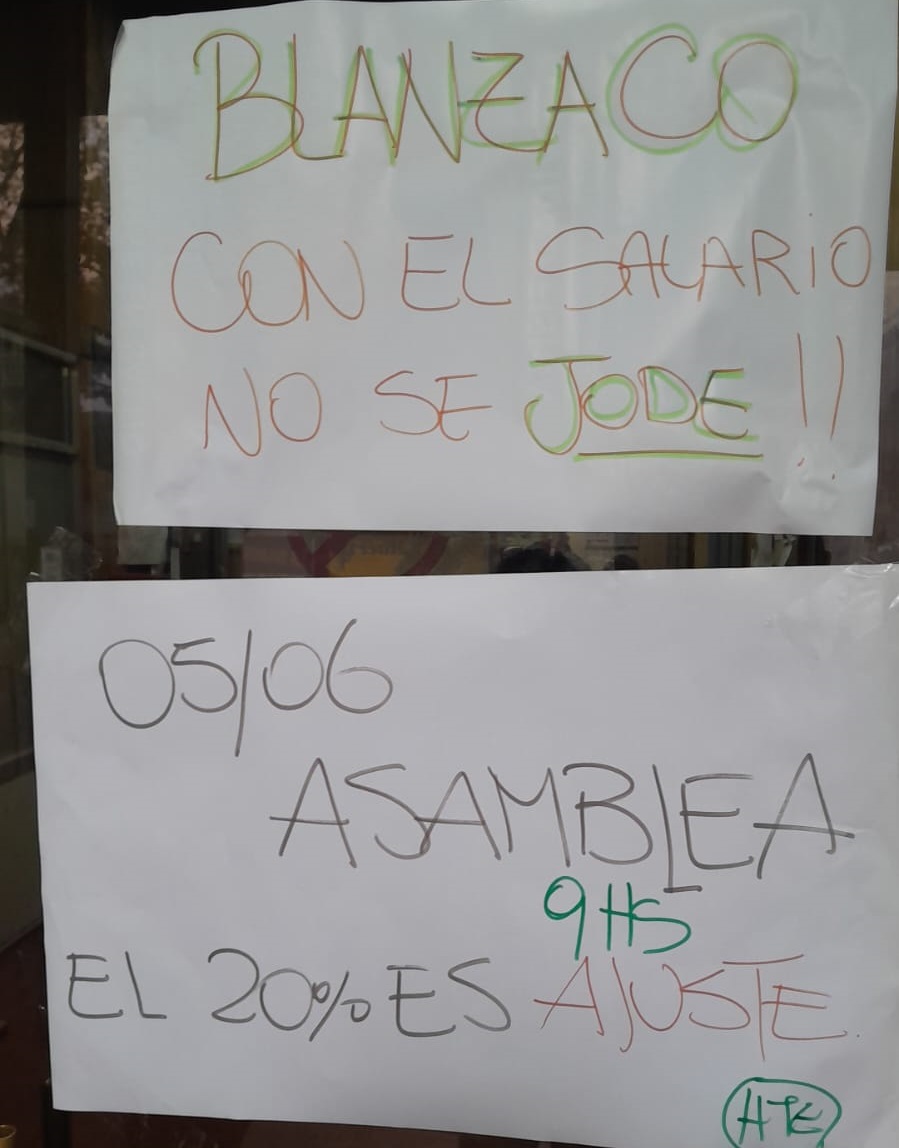 BLANZACO
CON EL SALARiO
NO SE JODE!!
05/06
ASAMBLEA
9HS
EL 20% ES AJUSTE.
HTK